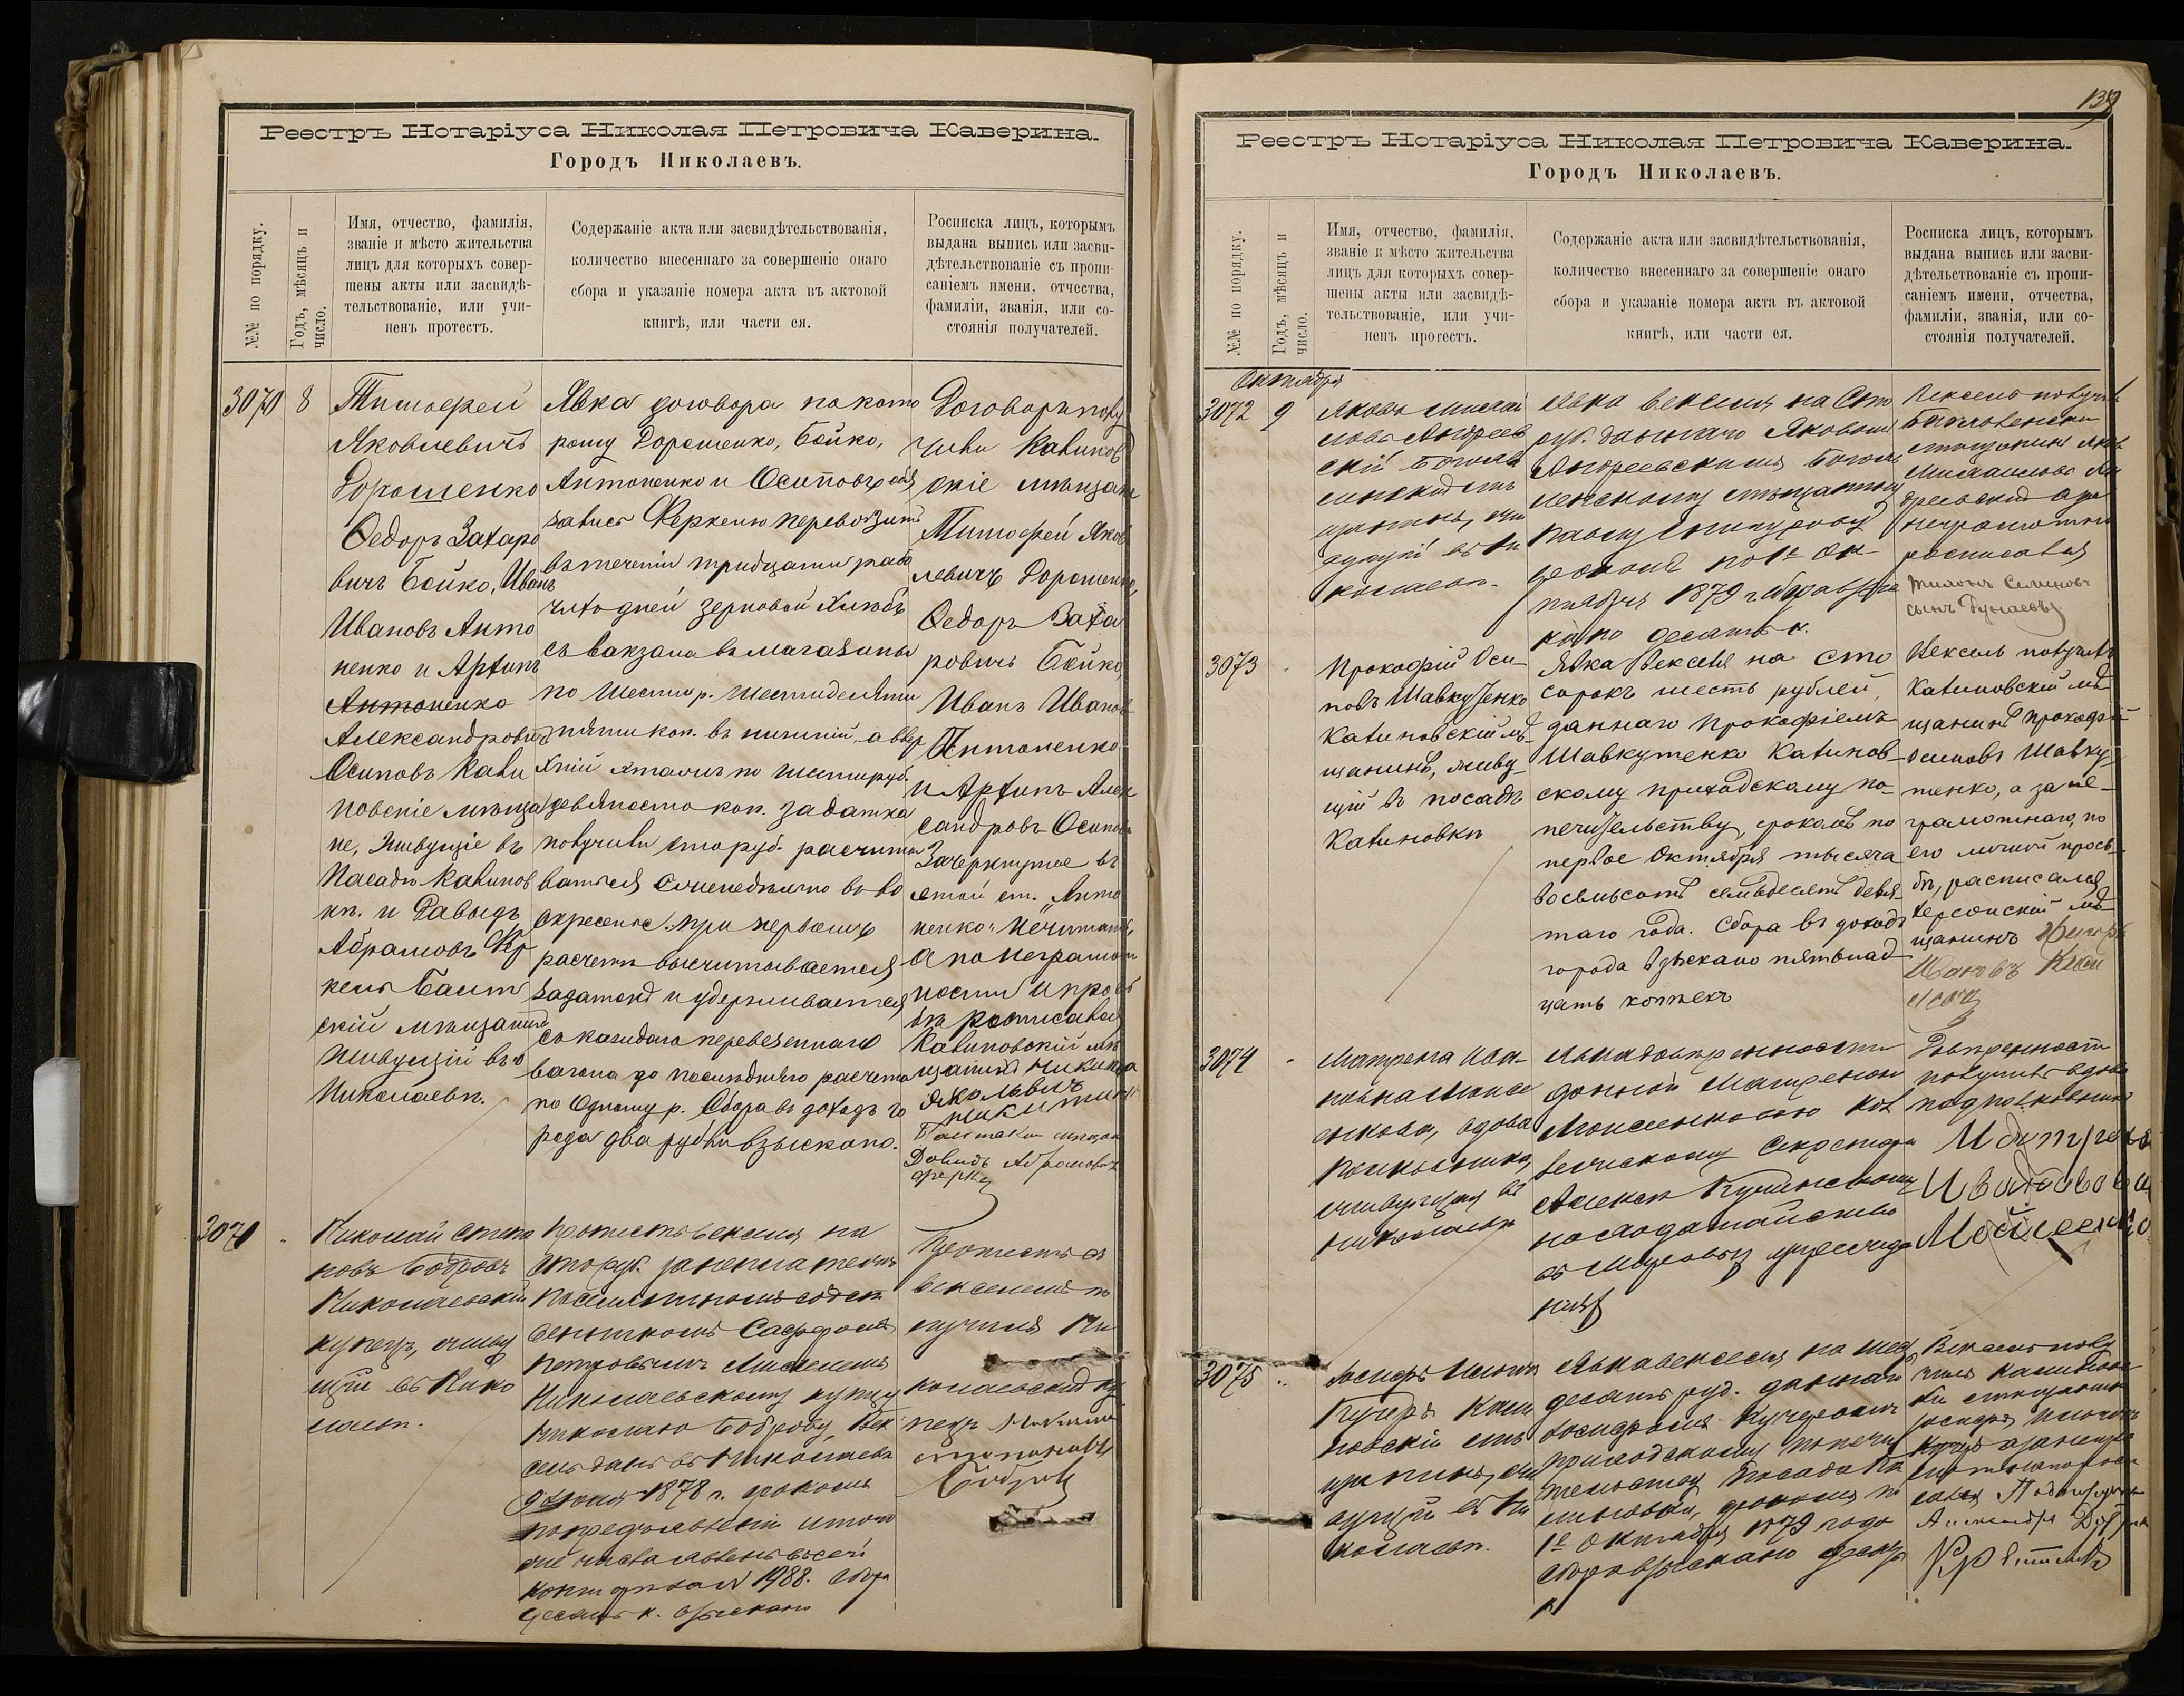 Реестръ Нотаріуса Николая Петровича Каверина.
Городъ Николаевъ.
№№ по порядку.
Годъ, мѣсяцъ и
число.
Имя, отчество, фамилія,
званіе и мѣсто жительства
лицъ для которыхъ совер-
шены акты или засвидѣ-
тельствованіе, или учи-
ненъ протестъ.
Содержаніе акта или засвидѣтельствованія,
количество внесеннаго за совершеніе онаго
сбора и указаніе номера акта въ актовой
книгѣ, или части ея.
Росписка лицъ, которымъ
выдана выпись или засви-
дѣтельствованіе съ пропи-
саніемъ имени, отчества,
фамиліи, званія, или со-
стоянія получателей.
3070
8
Тимофей
Яковлевичъ
Дорошенко
Ѳедоръ Захаро
вичъ Бойко, Иванъ
Ивановъ Анто
ненко и Архипъ
Антоненко
Александровичъ
Осиповъ Кали
новскіе мѣща
не, живущіе въ
Посадѣ Калинов
кѣ. и Давыдъ
Абрамовъ
скій мѣщанинъ
живущій въ
Николаевѣ.
Явка договора по кото
рому Дорошенко, Бойко,
Антоненко и Осиповъ обя
зались Феркелю перевозить
въ теченіи тридцати рабо
чихъ дней зерновой хлѣбъ
съ вокзала въ магазины
по шести р. шестидесяти
пяти коп. въ нижній, а въ вер
хній этажъ по шести руб.
девяносто коп. задатка
получили сто руб. расчиты
ваться еженедѣльно въ во
скресенье. при первомъ
расчетѣ высчитывается
задатокъ и удерживается
съ каждаго перевезеннаго
вагона до послѣдняго расчета
по одному р. Сбора въ доходъ го
рода два рубля взыскано.
Договоръ полу
чили Калинов
скіе мѣщане
Тимофей Яков
левичъ Дорошенко,
Ѳедоръ Заха
ровичъ Бойко,
Иванъ Иванов
Антоненко
и Архипъ Алек
сандровъ Осиповъ
Зачеркнутое въ
ст. „Анто
ненко" не читать,
а по неграмот
ности и прось
бѣ росписался
Калиновскій мѣ
щанинъ Никита
Никитинъ
Давидъ Абрамовъ
3071
Николай Степа
новъ Бобровъ
Николаевскій
купецъ, живу
щій въ Нико
лаевѣ.
Протестъ векселя на
сто руб. за неплатежъ
Петровымъ
Николаевскому купцу
Николаю Боброву, Век
сель данъ въ Николаевѣ
9 Іюня 1878 г. срокомъ
по предъявленіи
1988. Сбора
десять к. взыскано
Протестъ съ
векселемъ по
лучилъ Ни
колаевскій ку
пецъ Николай
Степановъ
Бобровъ
139
Реестръ Нотаріуса Николая Петровича Каверина.
Городъ Николаевъ.
№№ по порядку.
Годъ, мѣсяцъ и
число.
Имя, отчество, фамилія,
званіе и мѣсто жительства
лицъ для которыхъ совер-
шены акты или засвидѣ-
тельствованіе, или учи-
ненъ протестъ.
Содержаніе акта или засвидѣтельствованія,
количество внесеннаго за совершеніе онаго
сбора и указаніе номера акта въ актовой
книгѣ, или части ея.
Росписка лицъ, которымъ
выдана выпись или засви-
дѣтельствованіе съ пропи-
саніемъ имени, отчества,
фамиліи, званія, или со-
стоянія получателей.
Октября
3072
9
Яковъ Михай
ловъ Андреев
скій Богояв
ленскій мѣ
щанинъ, жи
вущій въ Ни
колаевѣ.
Явка векселя на сто
руб. даннаго Яковомъ
Андреевскимъ Богояв
ленскому мѣщанину
Павлу
срокомъ по 1е Ок-
тября 1879 г. Сбора взыс
кано десять к.
Вексель получилъ
Богоявленскій
мѣщанинъ Яковъ
Михайловъ Ан
дреевскій а за
неграмотн
росписался
Семеновъ
сынъ Дунаевъ
3073
Прокофій Оси-
повъ Шавкутенко
Калиновскій мѣ-
щанинъ, живу-
щій въ посадѣ
Калиновкѣ
Явка векселя на сто
сорокъ шесть рублей,
даннаго Прокофіемъ
Шавкутенко Калинов-
скому приходскому по-
печительству, срокомъ по
первое Октября тысяча
восемьсотъ семьдесятъ девя-
таго года. Сбора въ доходъ
города взыскано пятьнад-
цать копѣекъ
Вексель получилъ
Калиновскій мѣ-
щанинъ Прокофій
Осиповъ Шавку-
тенко, а за не-
грамотнаго, по
его личной прось-
бѣ, расписался
Херсонскій мѣ-
щанинъ
Ивановъ
3074
Матрена Ива-
новна Моисе
енкова, вдова
Полковника,
живущая въ
Николаевѣ
Явка довѣренности
данной Матреною
Моисеенковою Кол
лежскому Секретарю
Алексѣю
на ходатайство
въ Мировыхъ учрежде
ніяхъ
Довѣренность
получила вдова
подполковника
Матрена
Ивановна
Мойсеенко
3075
Іосифъ
Кучеръ Кали
новскій мѣ
щанинъ, жи
вущій въ Ни
колаевѣ.
Явка векселя на шесть
десятъ руб. даннаго
Іосифомъ Кучеромъ
приходскому попечи
тельству Посада Ка
линовки, срокомъ по
1е Октября 1879 года
Сбора взыскано десять
к
Вексель полу
чилъ Калиновс
кій мѣщанинъ
Іосифъ
Кучеръ а за негра